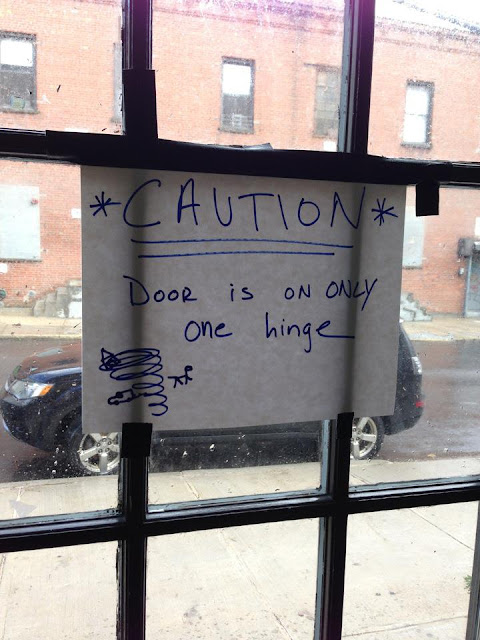 *CAUTION*
DOOR is ON ONLY
one hinge